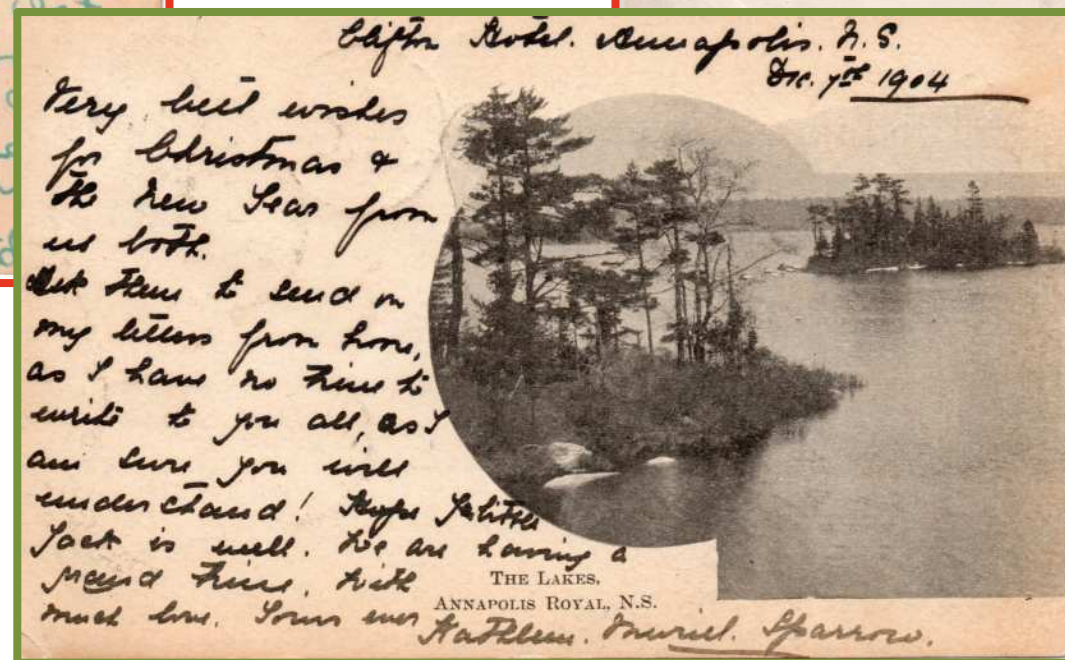 Clifton Hotel. Annapolis. N.S.
Dec. 7th 1904
Very best wishes
for Christmas &
the New Year from
us both.
Ask them to send on
my letters from home,
as I have no time to
write to you all, as I
am sure you will
understand! Hope
Jack is well. We are having a
grand time. With
much love. Yours ever
Kathleen. Muriel. Sparrow.
THE LAKES,
ANNAPOLIS ROYAL, N.S.